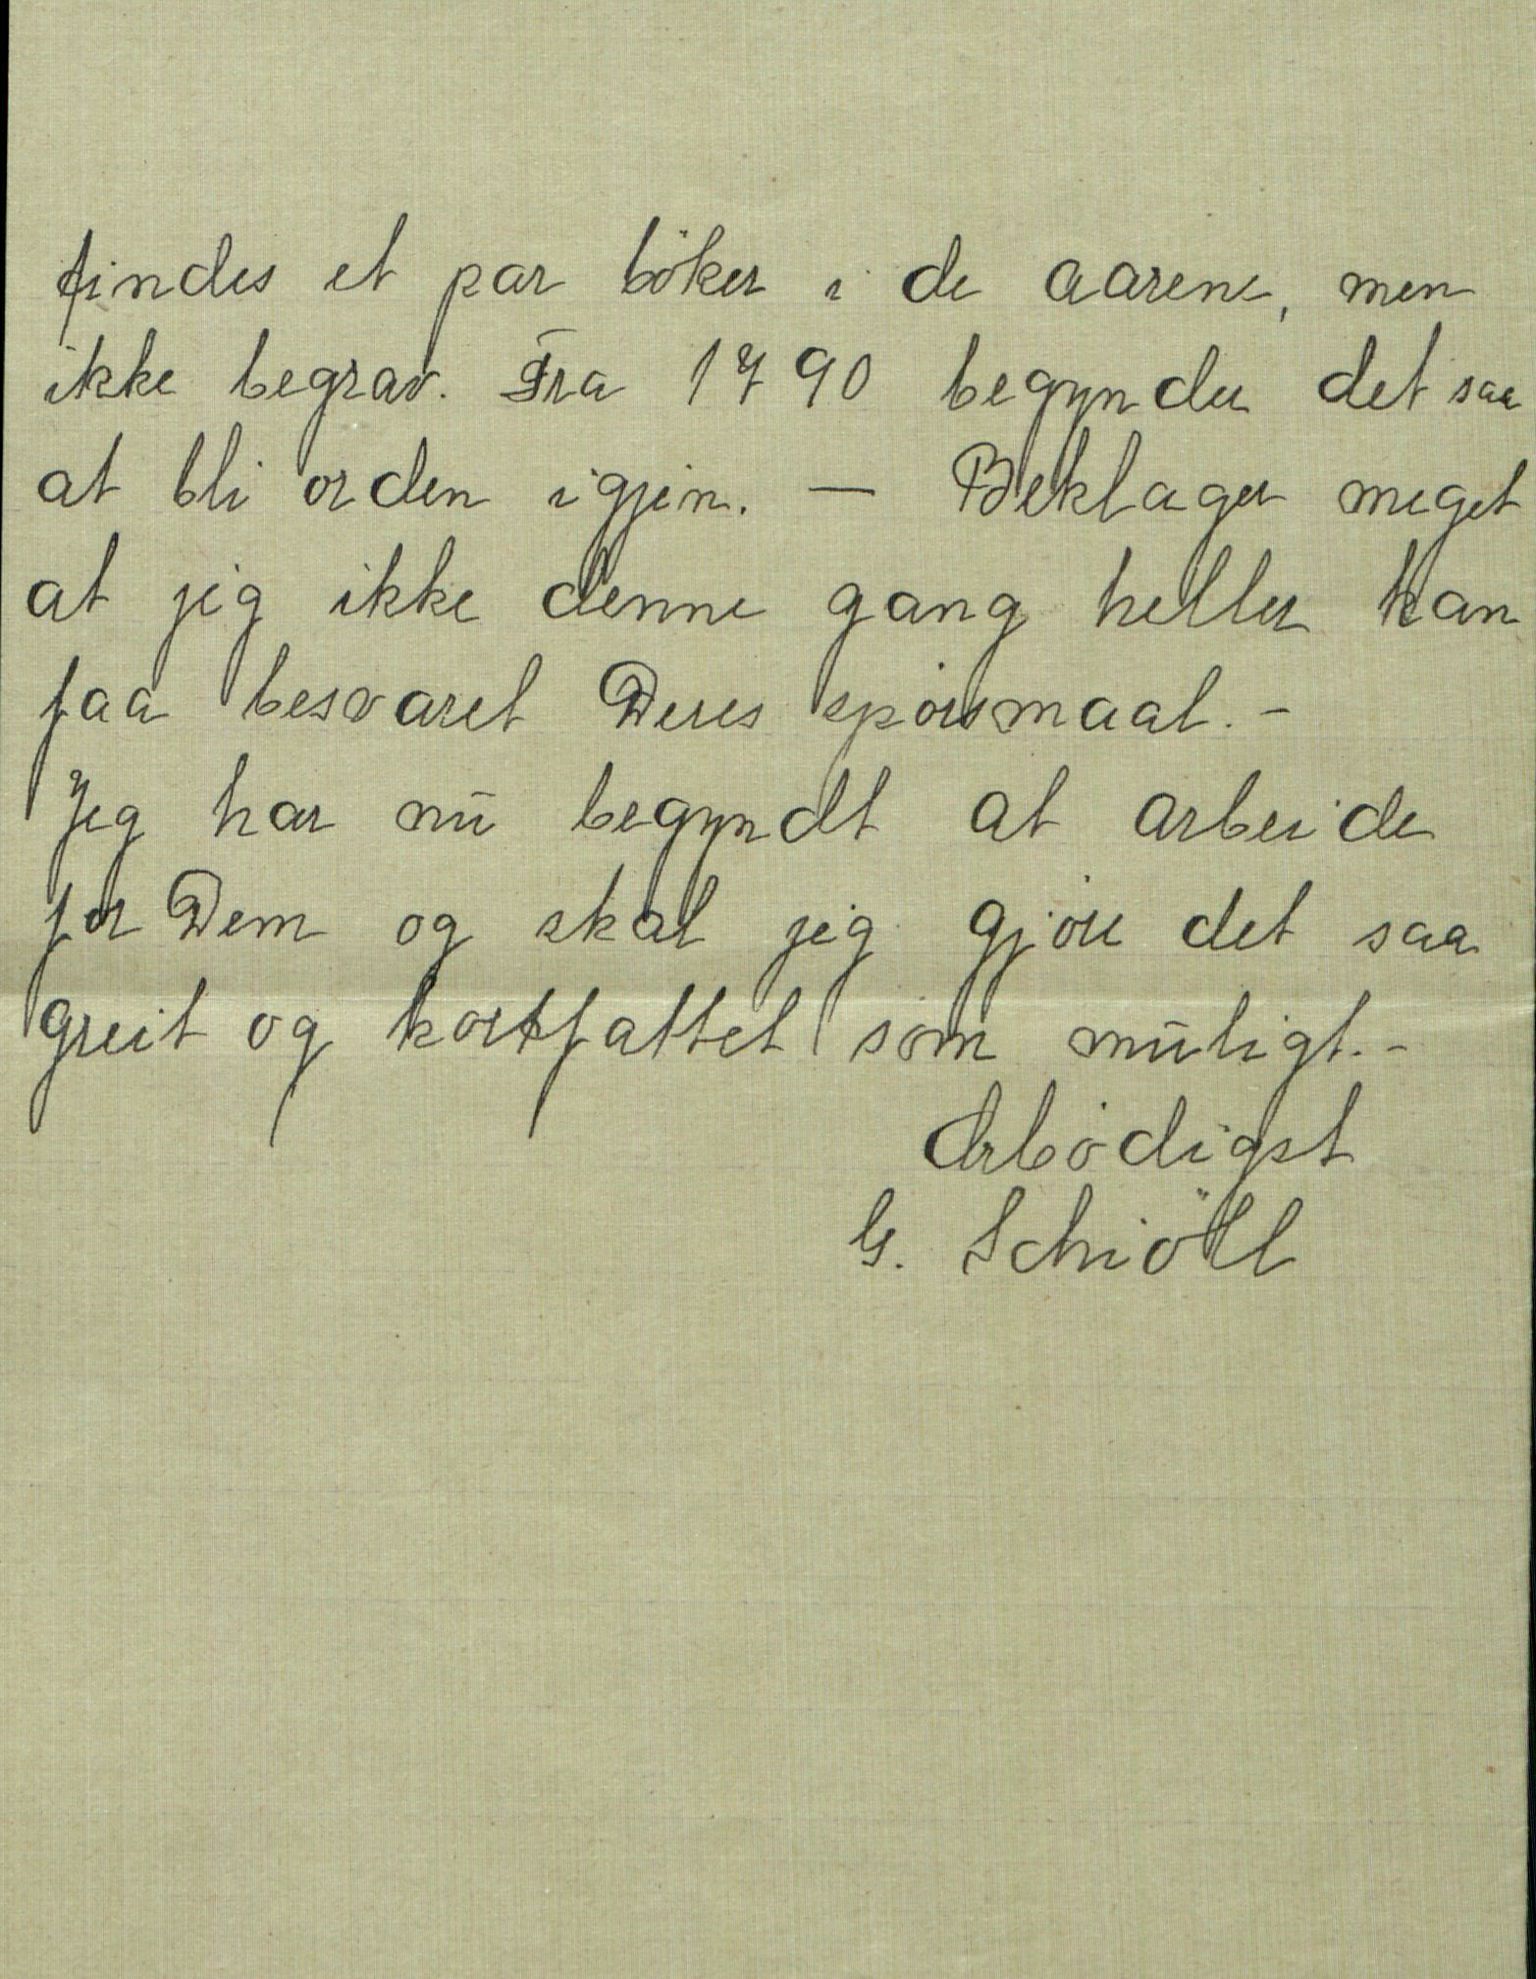 findes et par böker i de aarene, men
ikke begrav. Fra 1790 begynder det saa
at bli orden igjen. — Beklager meget
at jeg ikke denne gang heller kan
faa besvaret Deres spörsmaal. -
Jeg har nū begyndt at arbeide
for Dem og skal jeg gjöre det saa
greit og kortfattet som mūligt. -
Ærbödigst
G. Schiöll